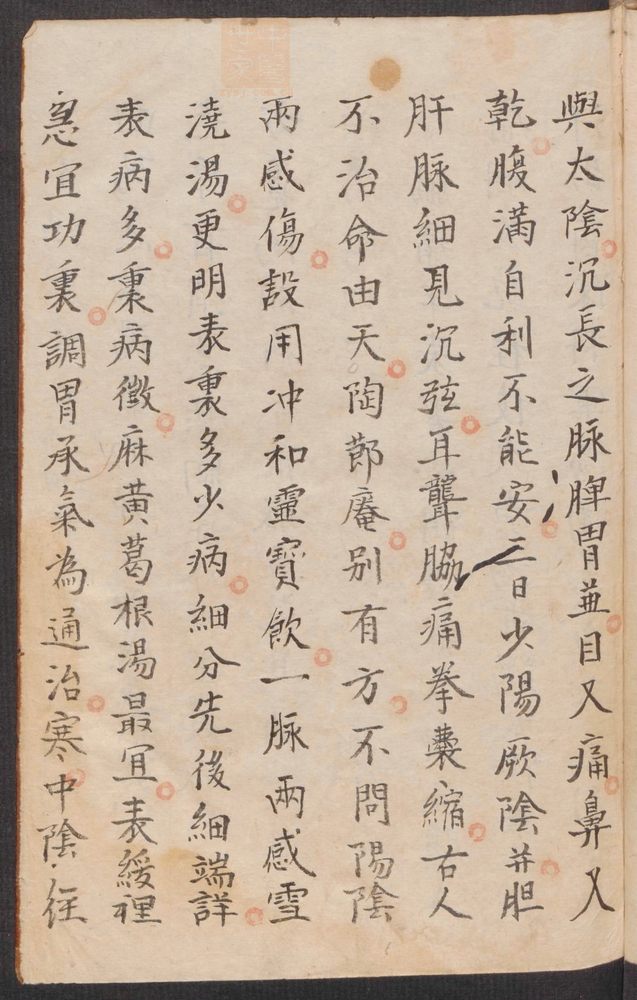 與太陰沉長之脉脾胃並目又痛鼻又
乾腹滿自利不能安三日少陽厥陰并胆
肝脉細見沉弦耳聾脇痛拳囊縮右人
不治命由天陶節庵別有方不問陽陰
兩感傷設用冲和靈寶飲一脉兩感雪
澆湯更明表裏多少病細分先後細端詳
表病多裏病微麻黃葛根湯最宜表緩裡
急宜功裏調胃承氣為通治寒中陰経